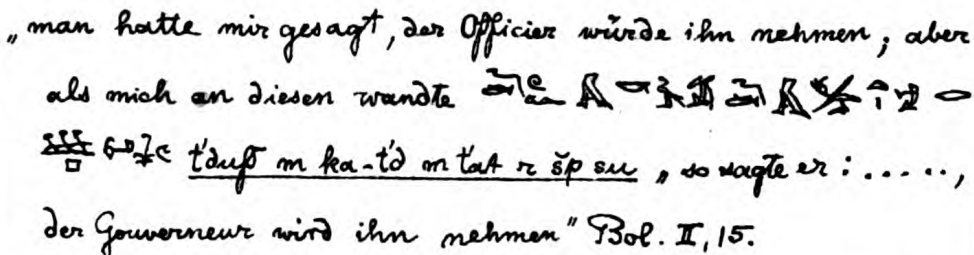 „man hatte mir gesagt, der Officier würde ihn nehmen; aber
als mich an diesen wandte
m ka-t'd m t'at r šp su „so sagte er: .....,
der Gouverneur wird ihn nehmen" Bol. II, 15.